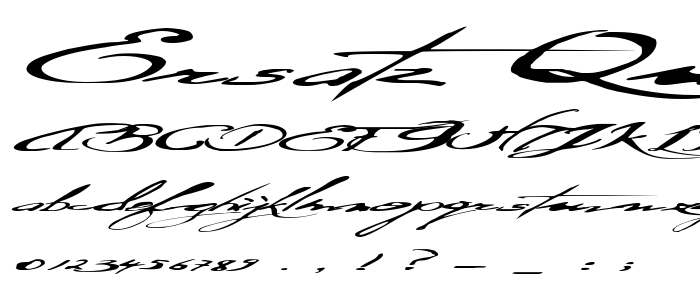 Ersatz Qu
ABCDEFGHIJKL
abcdefghijklmnopqrstuvwx
0123456789 . , ! ? - _ : ;